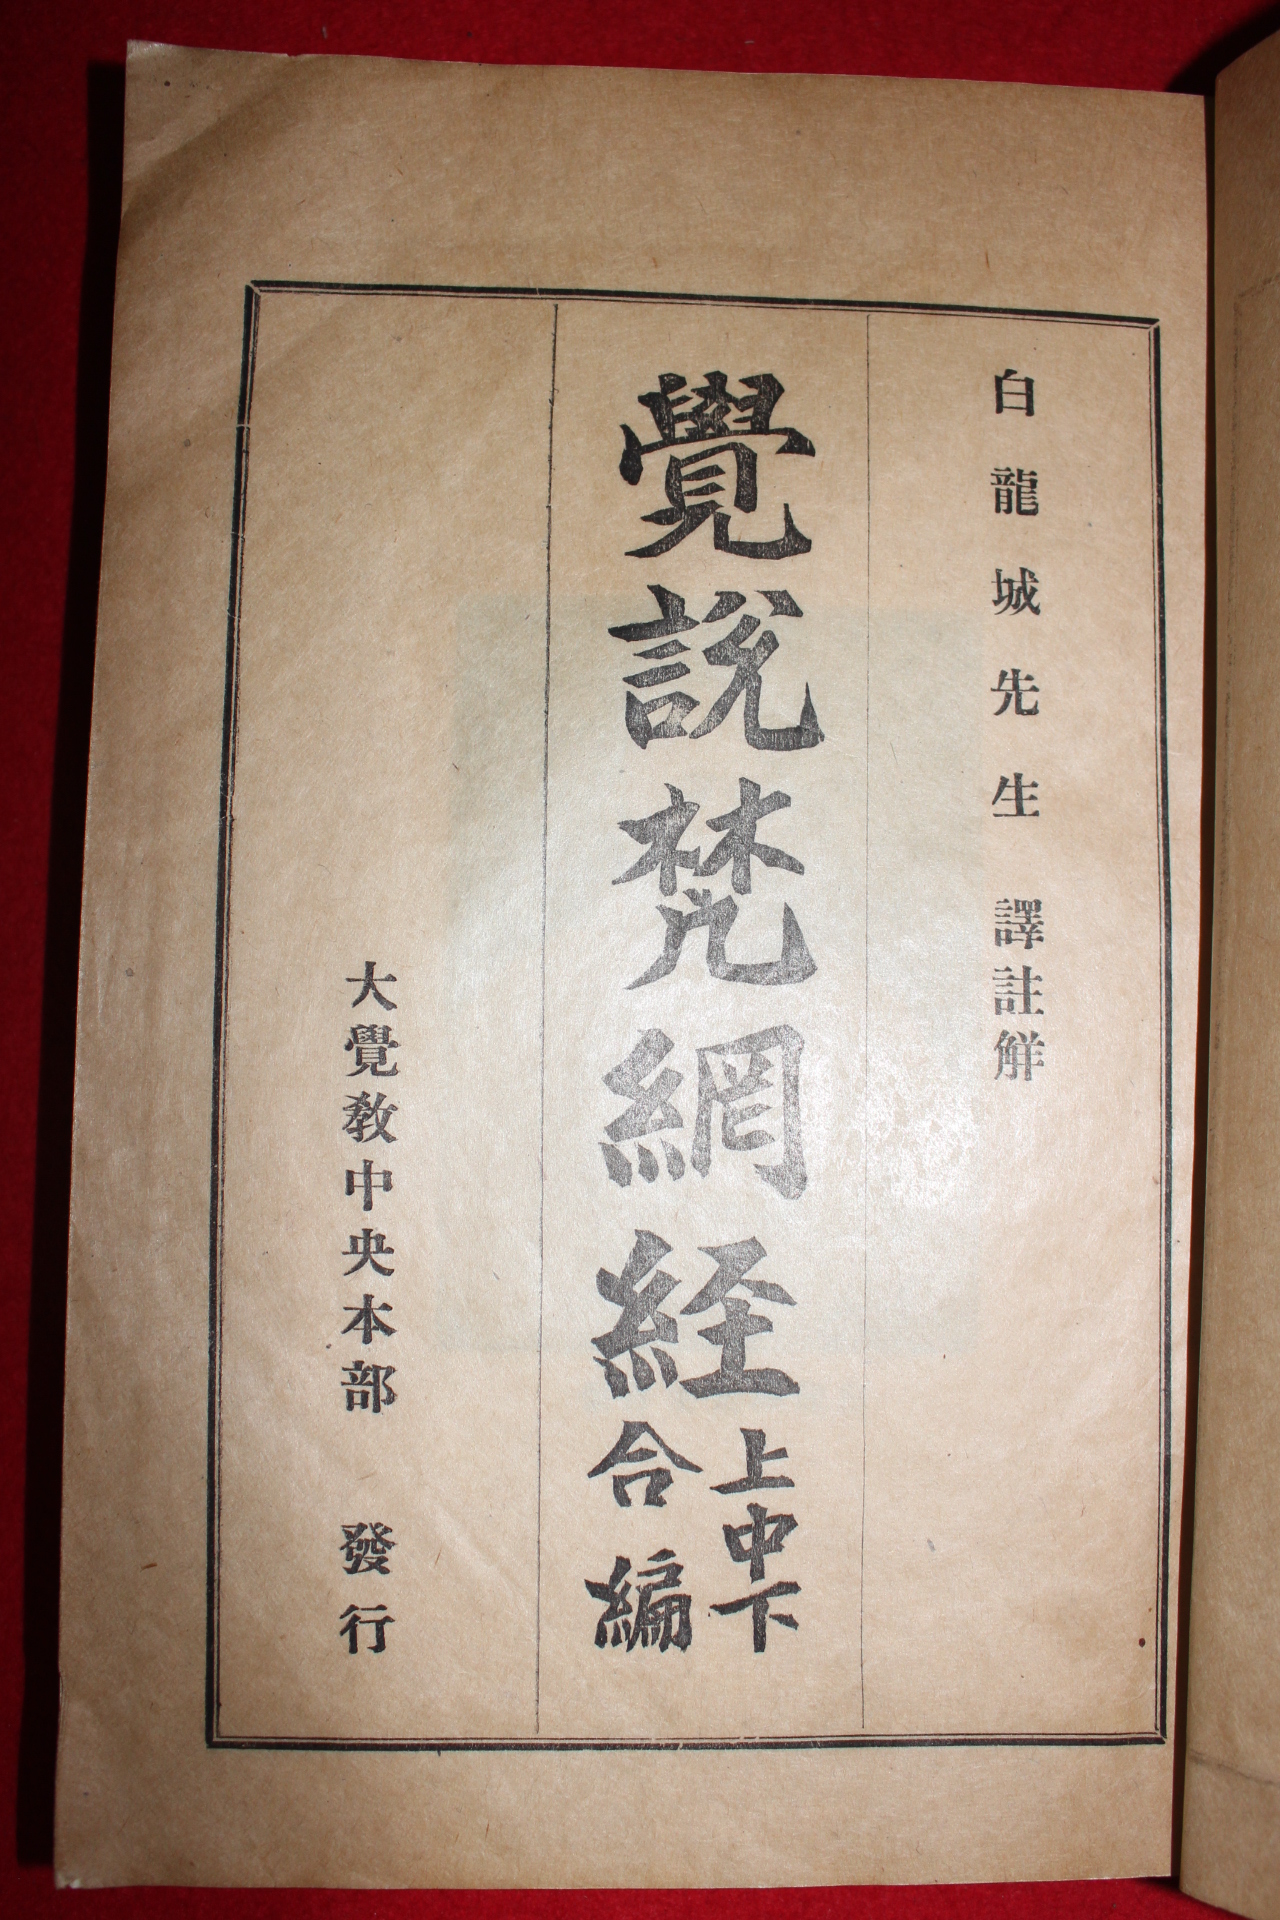 白龍城先生 譯註觧
覺說梵網経 上中下 合編
大覺教中央本部 發行